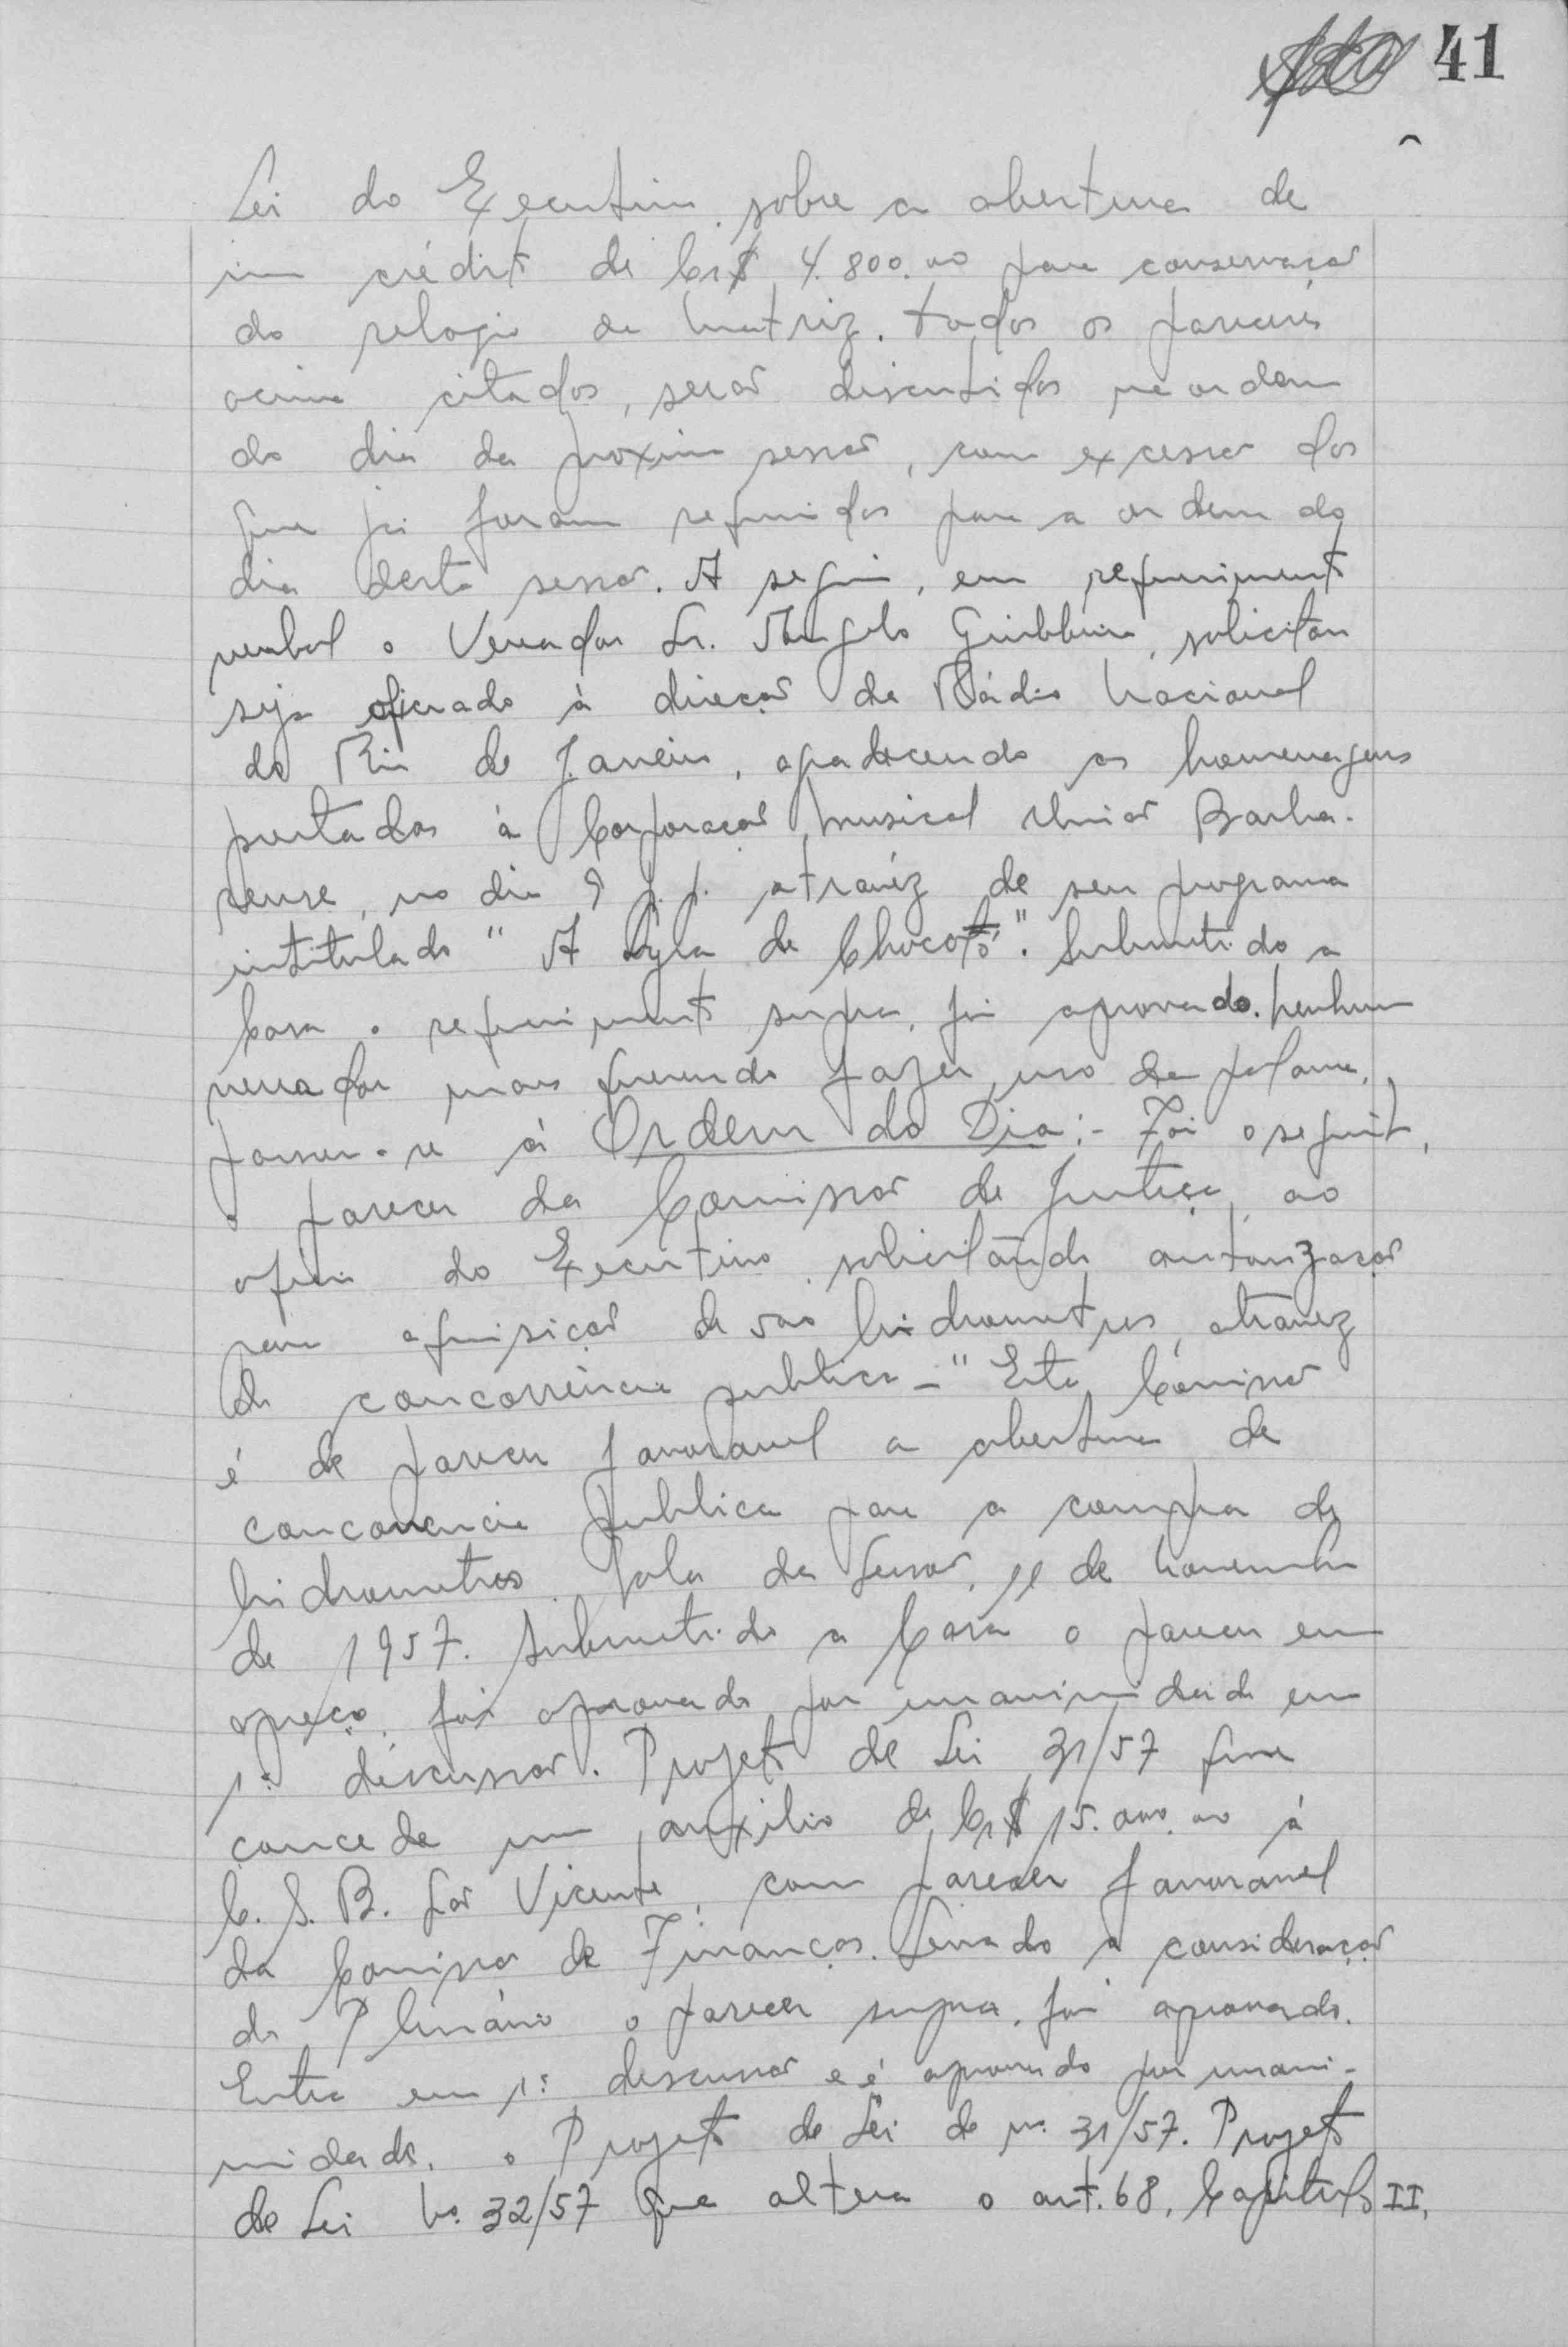 41
Lei do Executivo sobre a abertura de
um crédito de Cr$ 4.800.00 para conservação
do relogio da Matriz. Todos os pareceres
acima citados, serão discutidos na ordem
do dia da proxima sessão, com excessão dos
que já foram requeridos para a ordem do
dia desta sessão. A seguir, em requerimento
verbal o Vereador Sr. Angelo Giubbina, solicitou
seja oficiado à direção da Rádio Nacional
do Rio de Janeiro, agradecendo as homenagens
prestadas à Corporação Musical União Barba-
rense, no dia 9 p.p. atravéz de seu programa
intitulado "A Lyra de Chocotó". Submetido a
Casa o requerimento supra, foi aprovado. Nenhum
vereador mais querendo fazer uso da palavra,
passou-se á Ordem do Dia:- Foi o seguinte,
o parecer da Comissão de Justiça, ao
oficio do Executivo solicitando autorização
para aquisição de 500 hidrometros, atravéz
de concorrência publica - "Esta Comissão
é de parecer favoravel a abertura de
concorrencia publica para a compra de
hidrometros. Sala da Sessão, 11 de Novembro
de 1957. Submetido a Casa o parecer em
apreço, foi aprovado por unanimidade em
1ª discussão. Projeto de Lei 31/57 que
concede um auxilio de Cr$ 15.000.00 à
C. S. B. São Vicente, com parecer favoravel
da Comissão de Finanças. Levado a consideração
do Plenário o parecer supra, foi aprovado.
Entra em 1ª discussão e é aprovado por unani-
midade, o Projeto de Lei de nº 31/57. Projeto
de Lei Nº 32/57 que altera o art. 68, Capitulo II,